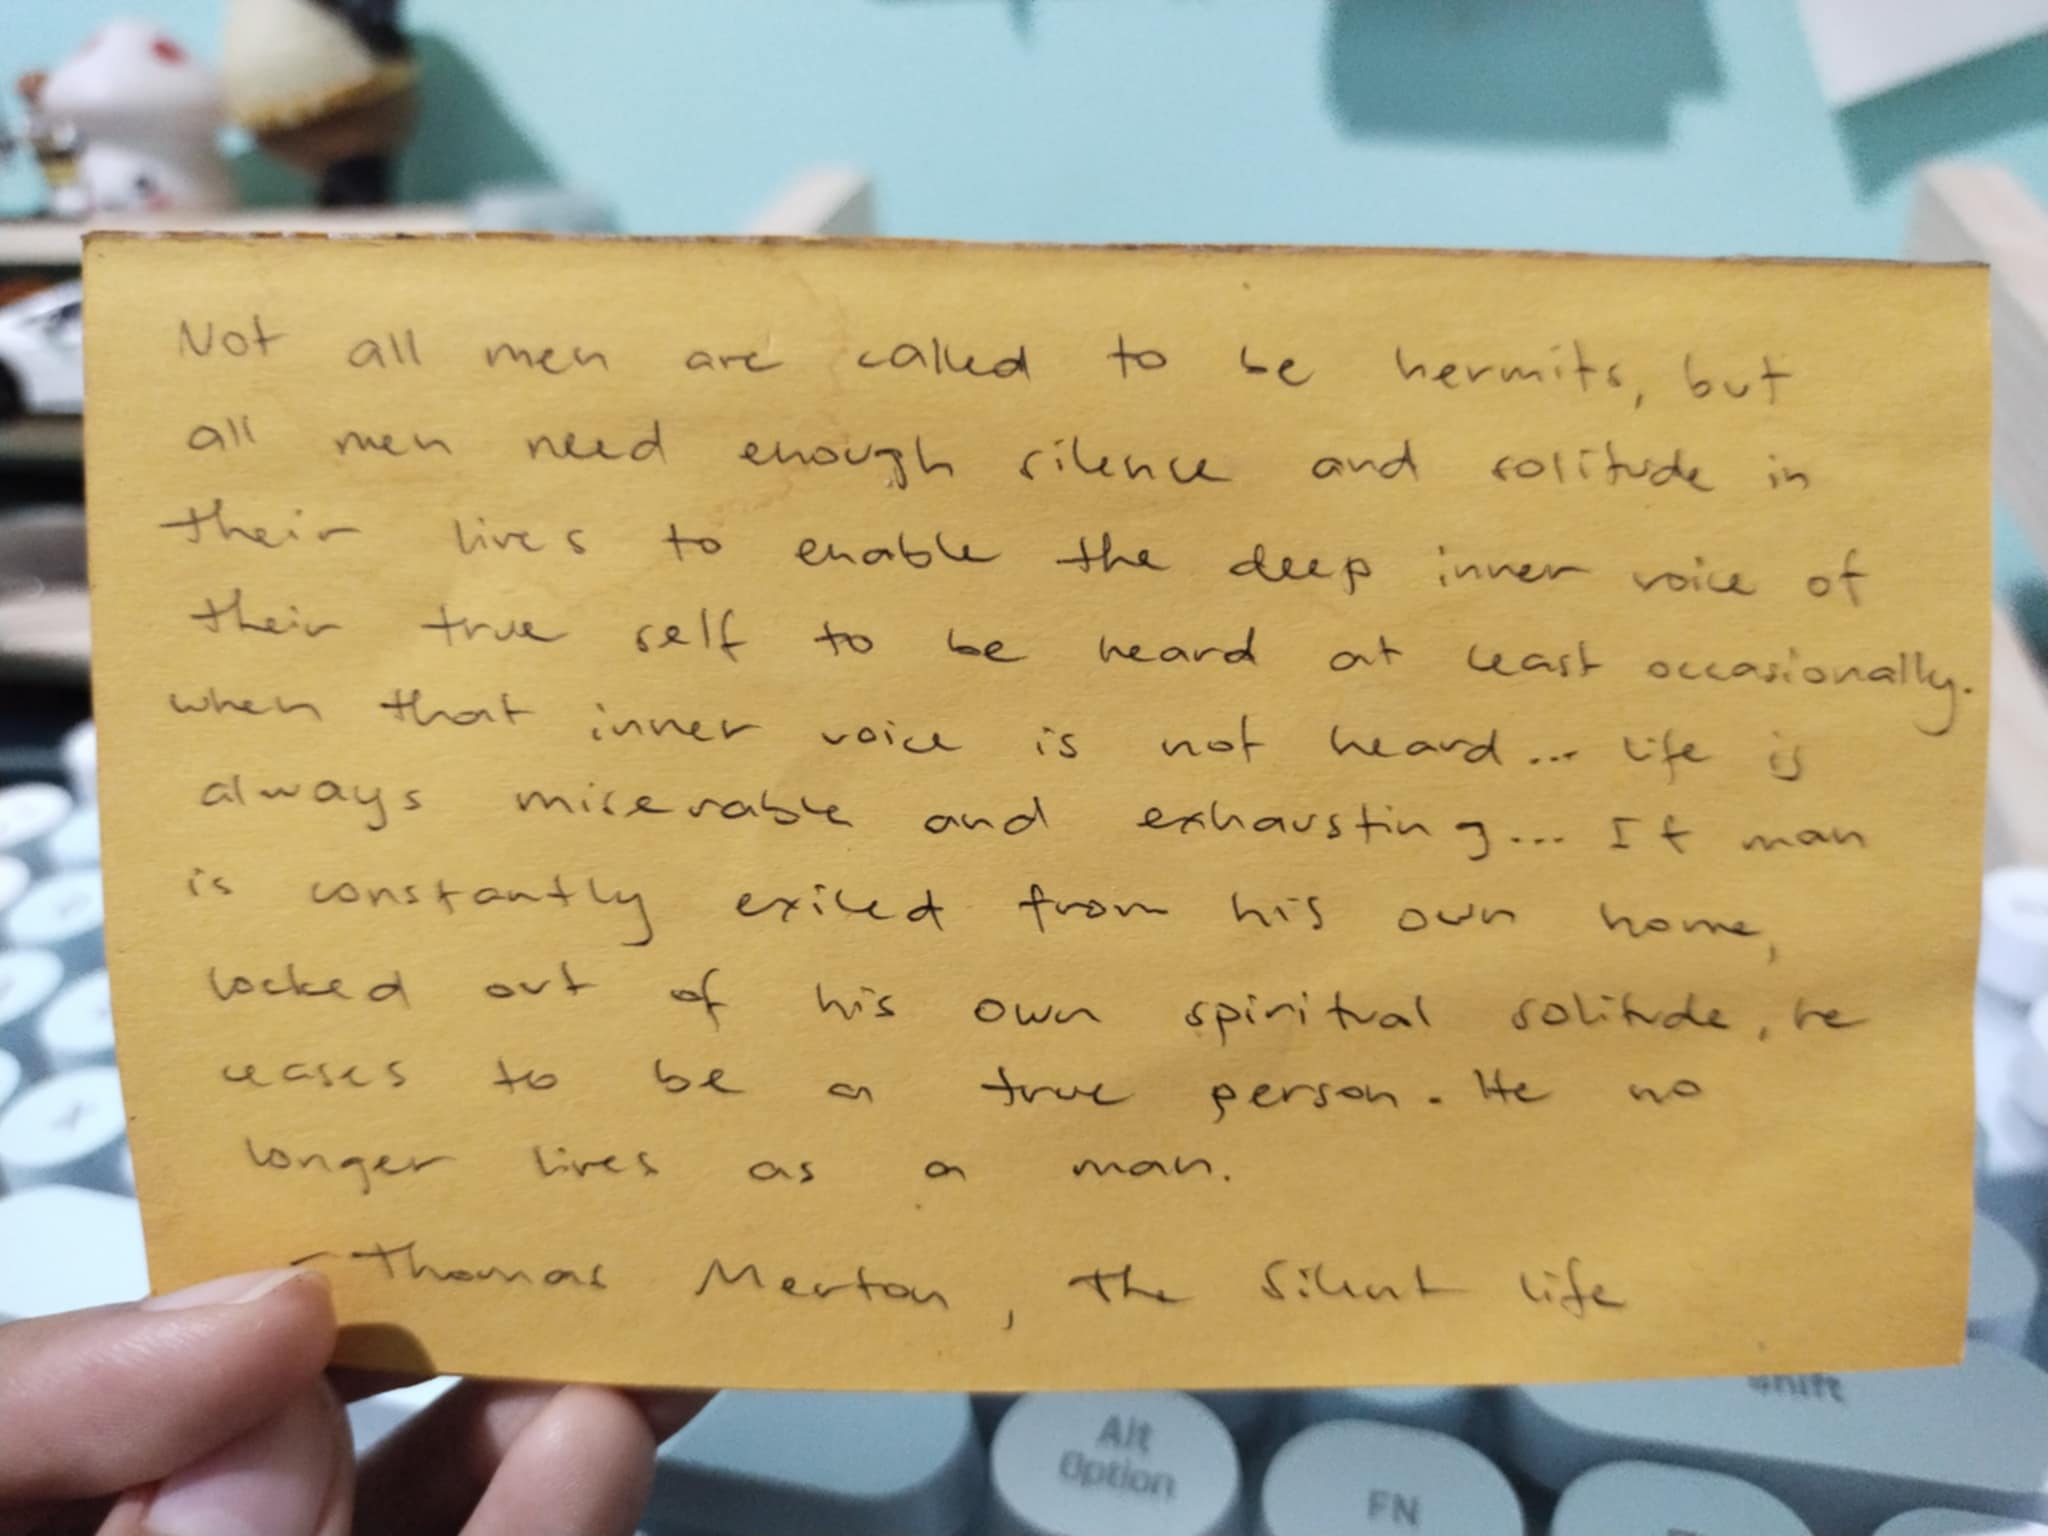 Not all men are called to be hermits, but
all men need enough silence and solitude in
their lives to enable the deep inner voice of
their true self to be heard at least occasionally.
when that inner voice is not heard... life is
always miserable and exhausting... If man
is constantly exiled from his own home,
locked out of his own spiritual solitude, he
ceases to be a true person. He no
longer lives as a man.
- Thomas Merton, The Silent life
Shift
Alt
Option
FN